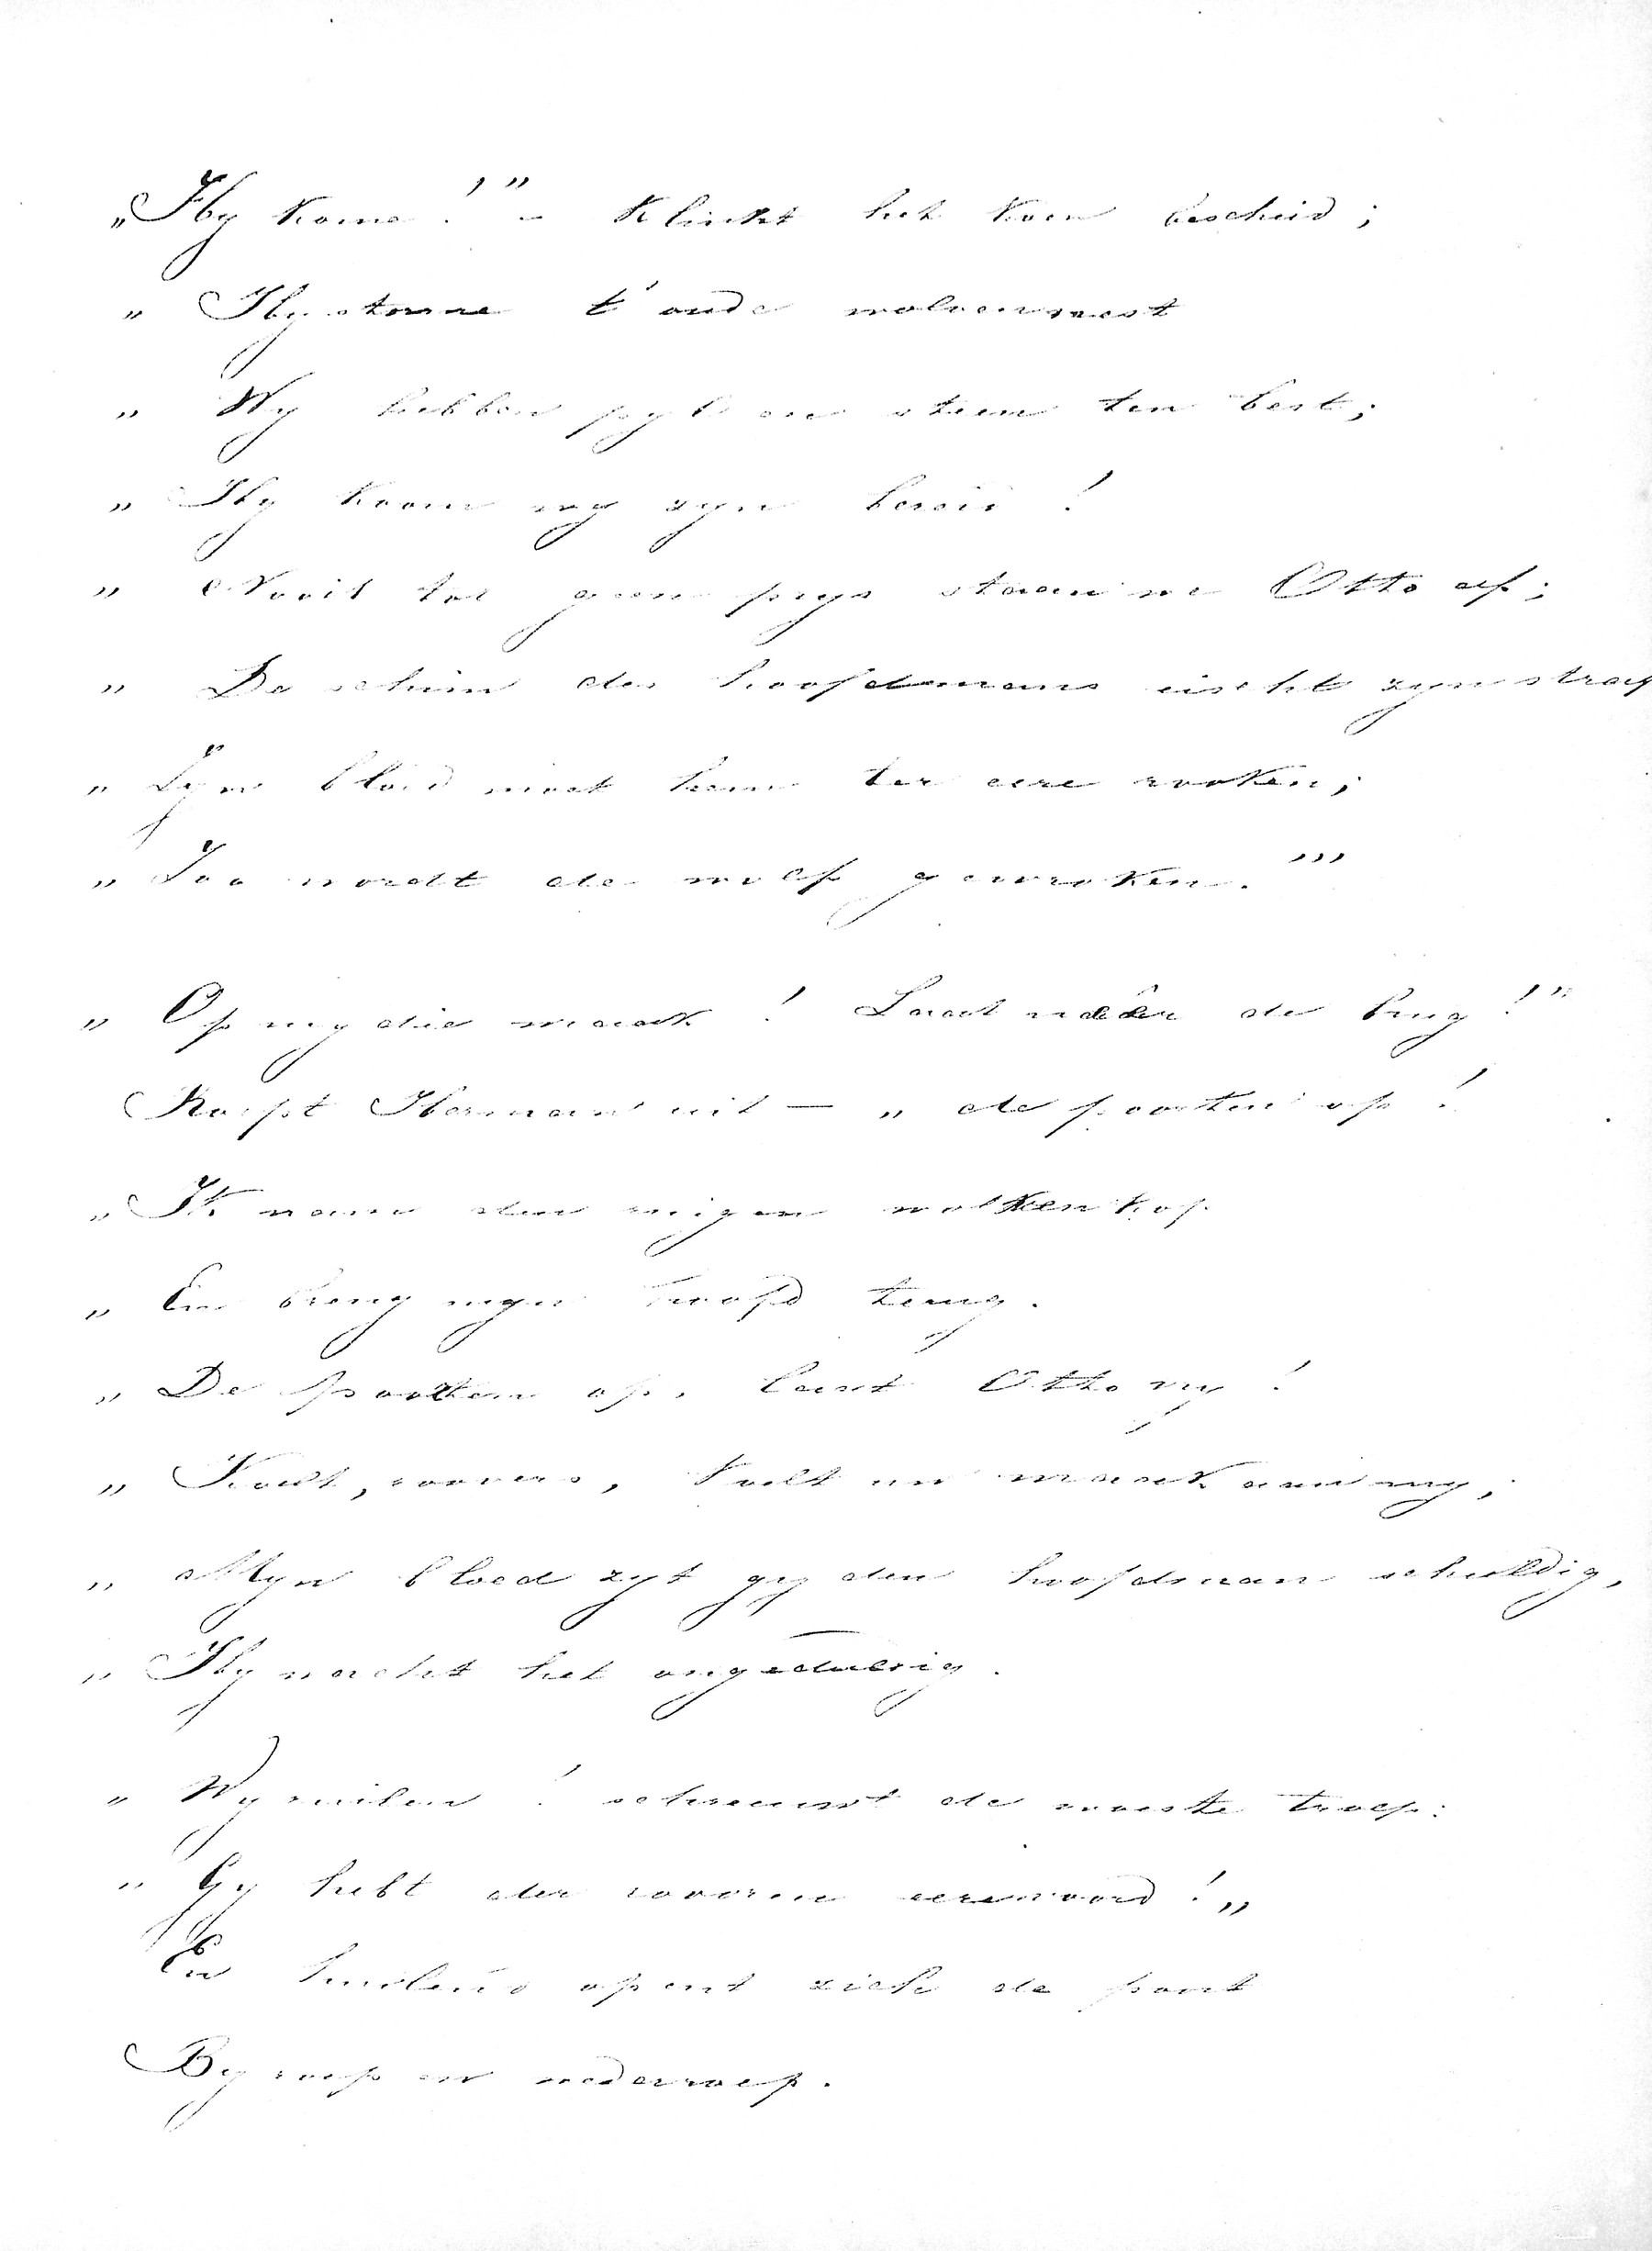 „Hy kome!" – Klinkt het koen bescheid;
„ Hy storme t' oude wolvennest
„ Wy hebben pyl en steen ten best;
„ Hy koom wy zyn bereid!
„ Nooit tot geen prys staan we Otto af;
„ De schim des hoofdmans eischt zyn straf
„ Zyn bloed moet hem ter eere rooken;
„ Zoo wordt de wolf gewroken."'
„ Op my die wraak! Laat neêr de brug!"
Roept Herman uit — „ de poorten op!
„ Ik nam den eigen wolvenkop
„ En breng myn hoofd terug.
„ De poorten op, laat Otto vry!
„ Koelt, roovers, koelt uw wraak aan my;
„ Myn bloed zyt gy den hoofdman schuldig,
„ Hy wacht het ongeduldig.
„ Wy ruilen! schreeuwt de woeste troep:
„ Gy hebt der rooveren eerewoord!„
En huilend opent zich de poort
By roep en wederroep.